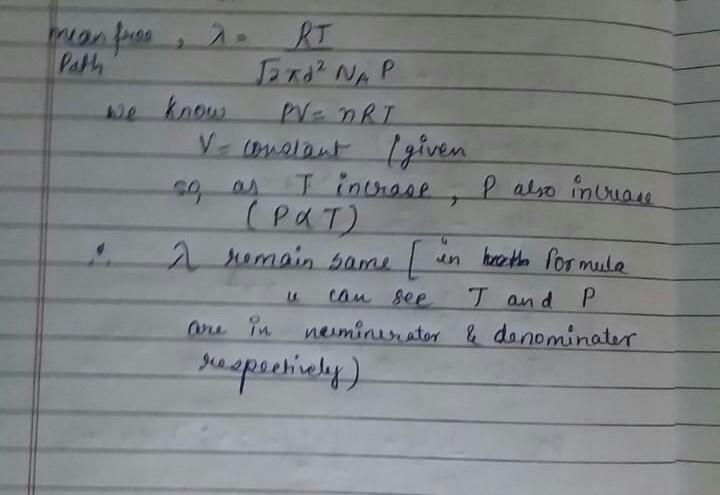 mean free , λ = RT
Path √2πd² N_A P
we know PV = nRT
V = constant (given
so, as T increase , P also increase
(P α T)
∴ λ remain same [ in formula
u can see T and P
are in numinerator & denominater
respectively)